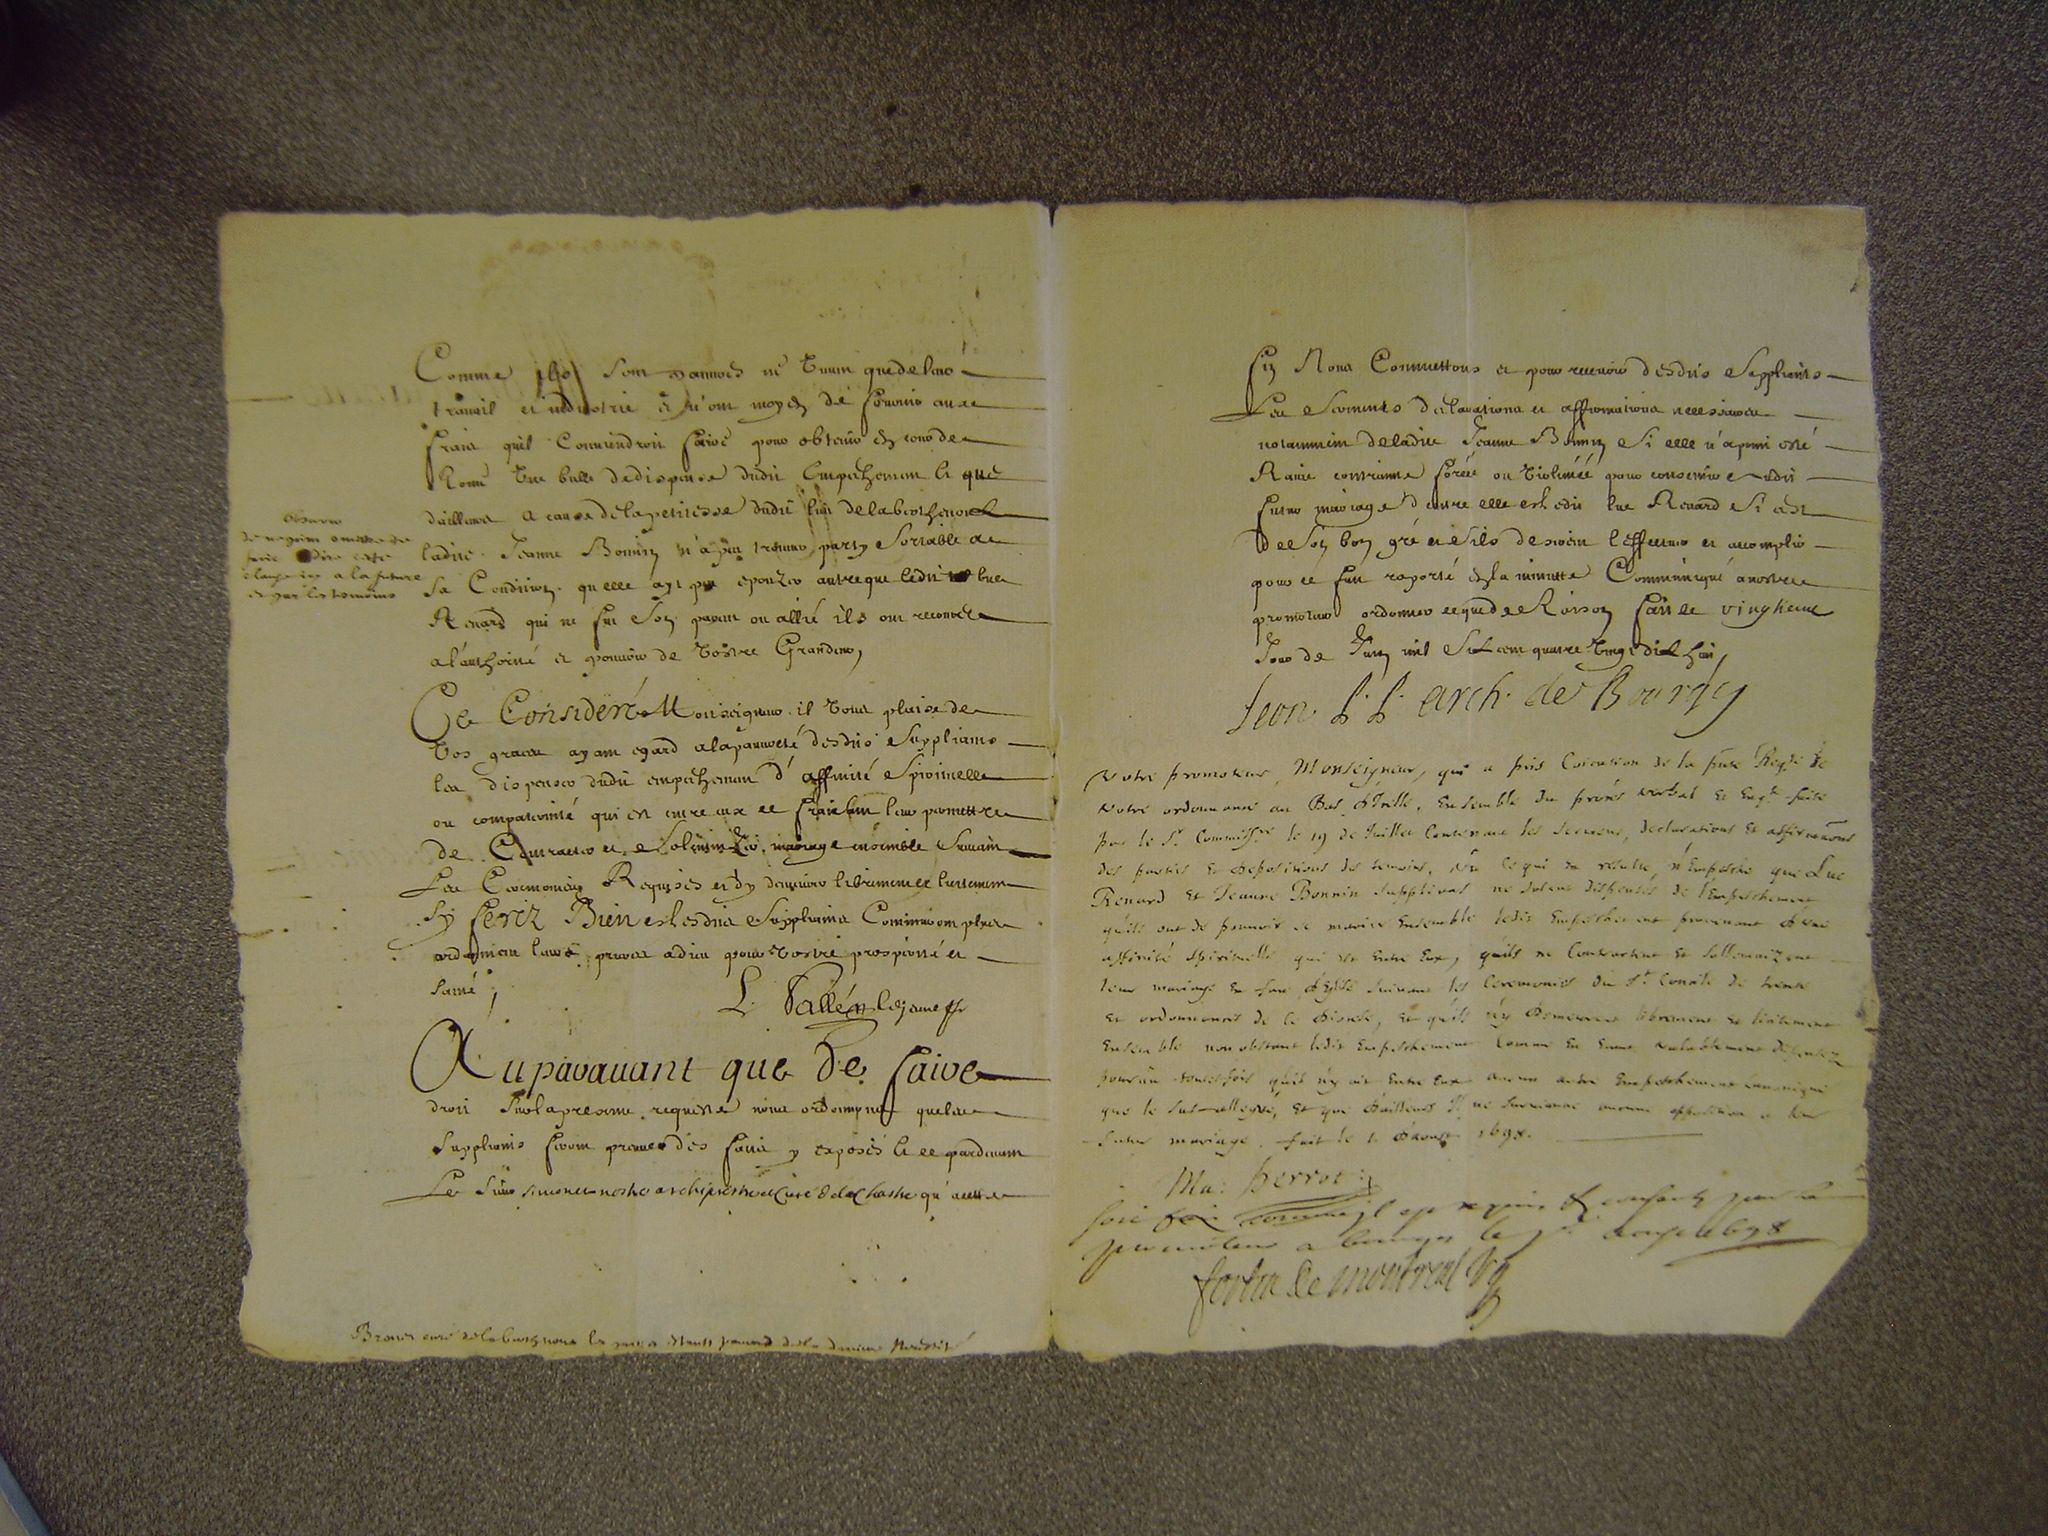 Comme ilz sont pauvres ne vivans que de leur
travail et industrie et n'ont moyen de fournir aux
fraiz quil conviendroit faire pour obtenir en cour de
Rome une bulle de dispense dudit empeschement et que
dailleurs a cause de la petitesse dudit lieu de la berthenoux
ladite Jeanne Bonnin n'a peu trouver party sortable a
sa Condition qu elle ayt pu epouzer autre que ledit luc
Renard qui ne fut son parent ou allié ils ont recours
a l'authorité et pouvoir de Vostre Grandeur,
observer
de ne point omettre de
faire dire cette
clause icy a la future
et par les temoins
Ce Considéré Monseigneur il vous plaise de
vos graces ayant egard a la pauvreté desdits Suppliants
les dispenser dudit empeschement d'affinité Spirituelle
ou compaternité qui est entre eux ce faisant leur permettre
de Contracter et Solemnizer mariage ensemble Suivant
Les Ceremonies Requises et d'y demeurer librement et licitement
Sy ferez Bien et lesdits Suppliants Continueront plus
ardemment leurs prieres a dieu pour vostre prosperité et
santé,
Auparavant que de faire
droit sur la presente requeste nous ordonnons que les
Suppliants feront preuve des faits y exposés et ce pardevant
Le Sieur nostre archiprestre et Curé de la Chastre qu'a cette
fin Nous Commettons et pour recevoir desdits Suppliants
Les Serments declarations et affirmations necessaires
notamment de ladite Jeanne Bonnin Si elle n'a point esté
Ravie contrainte forcée ou violentée pour consentir audit
futur mariage d'entre elle et ledit luc Renard Si c'est
de Son bon gré et Sils desirent l'effectuer et accomplir
pour ce fait raporté et la minutte Communiqué a nostre
promoteur ordonner ce que de Raison fait le vingtieme
Jour de Juin mil Six cent quatre vingt dix huit,
Leon P. P. arch. de Bourges
Votre promoteur, Monseigneur, qui a pris Communication de la pnte Reqte de
votre ordonnance au Bas d'Icelle, Ensemble du procés verbal et Enqte faite
par le Sr. Commissre le 19 de Juillet Contenant les serments, declarations et affirmations
des parties et depositions des temoins, Vû ce qui en resulte, n'Empesche que Luc
Renard et Jeanne Bonnin Suppliants ne soient dispensés de l'Empeschement
qu'ils ont de pouvoir se marier Ensemble ledit Empeschement provenant d'une
affinité spirituelle qui est Entre Eux, quils ne Contractent et sollemnizent
leur mariage en face d'Eglise suivant les Ceremonies du St. Concile de trente
et ordonnances de ce diocese, et qu'ils n'y Demeurent librement et licitement
Ensemble non obstant ledit Empeschement Comme En étant valablement dispensez
pourvu toutesfois quil n'y ait Entre Eux aucun autre Empeschement Canonique
que le sus-allegué, et que d'ailleurs Il ne survienne aucune opposition a leur
futur mariage. fait le 1. d'aoust 1698.
Ma: Perrot
soit fait comme il est requis et consenty par le
promoteur a bourges le 1er aoust 1698
de montreal vg